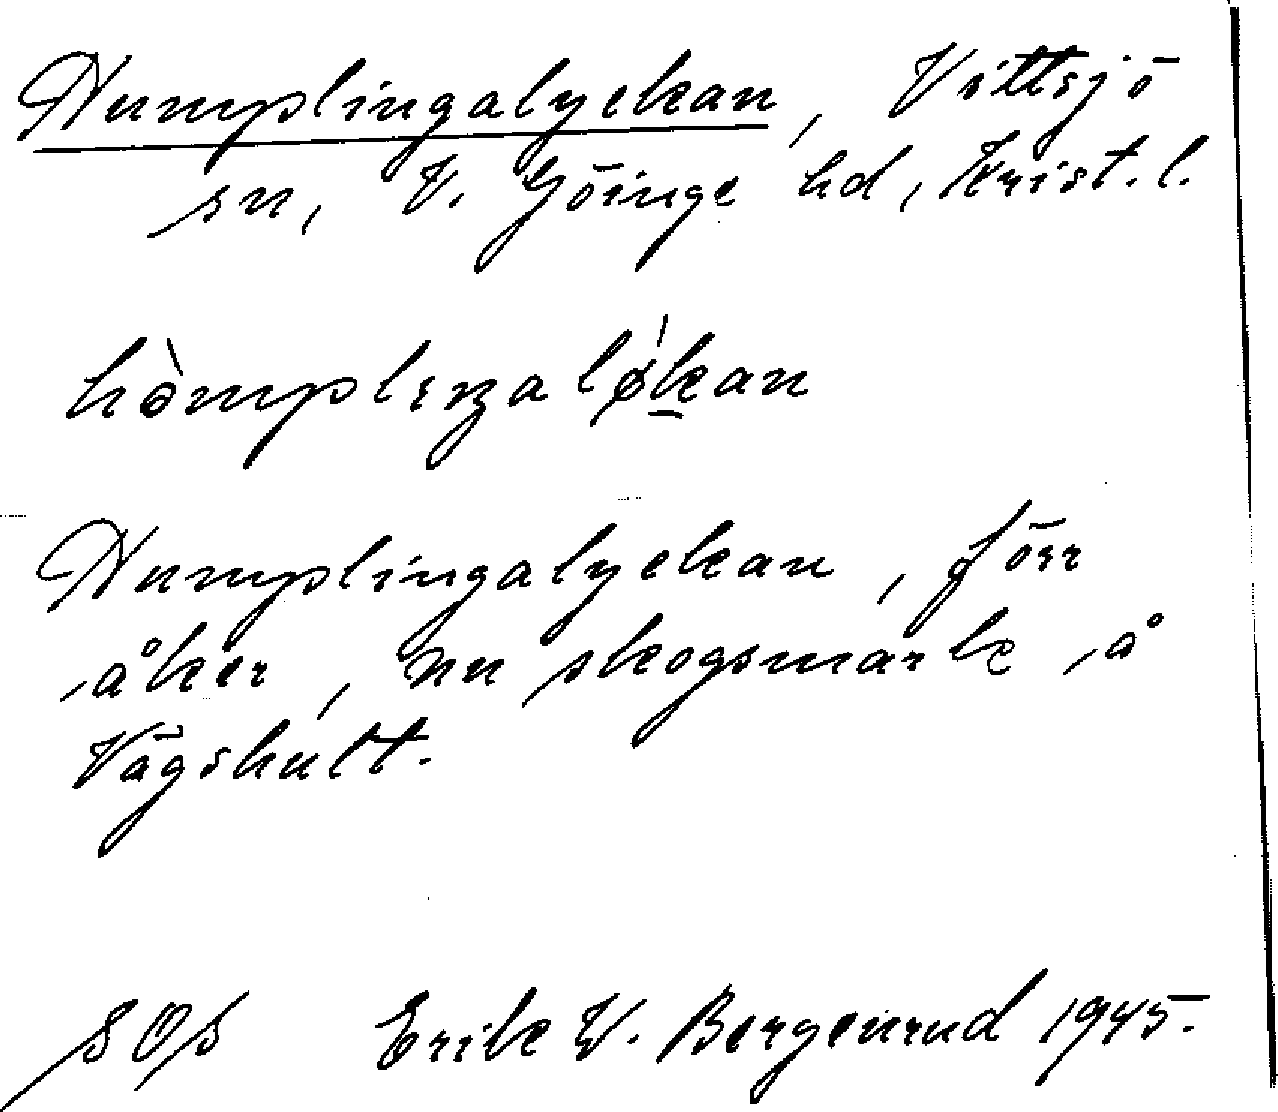 Humplingalyckan, Vittsjö
sn, V. Göinge hd, Krist. l.
hòmplıŋaløkan
Humplingalyckan, förr
åker, nu skogsmark, å
Vägshult.
SOS Erik W. Bergenrud 1945.